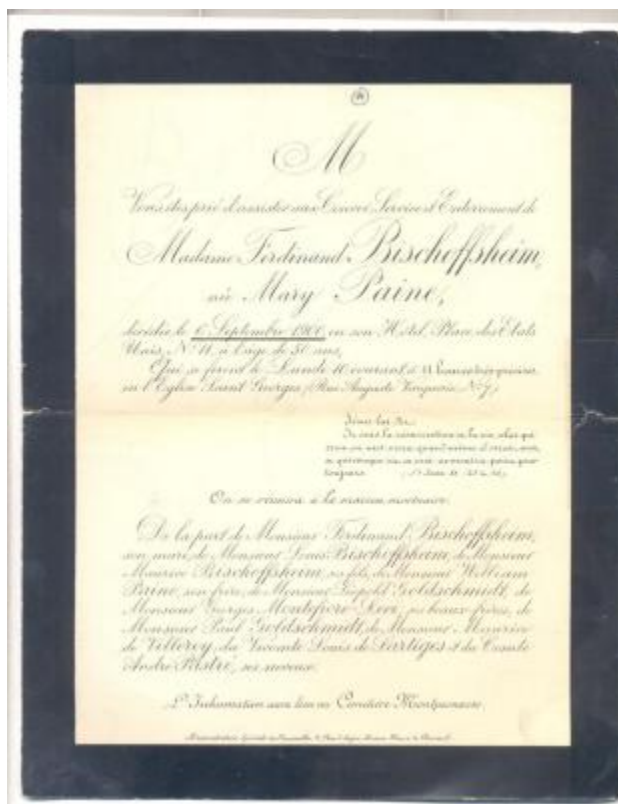 M
Vous êtes prié d'assister aux Convoi, Service et Enterrement de
Madame Ferdinand Bischoffsheim,
née Mary Paine,
décédée le 6 Septembre 1900, en son Hôtel, Place des Etats
Unis, N° 11, à l'âge de 50 ans,
Qui se feront le Lundi 10 courant, à 11 heures très précises
en l'Eglise Saint Georges, (Rue Auguste Vacquerie N° 7)
Jésus lui dit:
Je suis la résurrection et la vie, celui qui
(St Jean
On se réunira à la maison mortuaire.
De la part de Monsieur Ferdinand Bischoffsheim,
son mari, de Monsieur Louis Bischoffsheim, de Monsieur
Maurice Bischoffsheim, ses fils, de Monsieur William
Paine, son frère, de Monsieur Léopold Goldschmidt, de
Monsieur Georges Montefiore Levi, ses beaux-frères, de
Monsieur Paul Goldschmidt, de Monsieur Maurice
de Villeroy, du Vicomte Louis de Dartiges et du Comte
André Pastré, ses neveux.
L'Inhumation aura lieu au Cimetière Montparnasse.